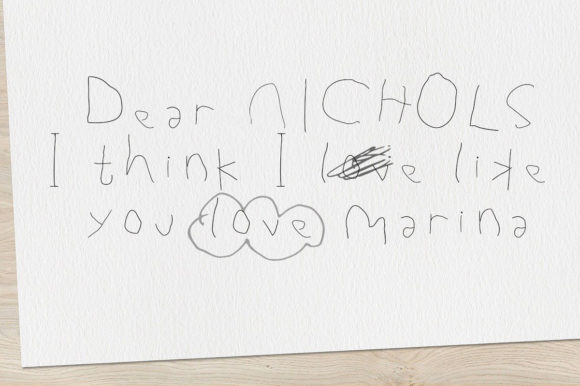 Dear NICHOLS
I think I love like
you love Marina